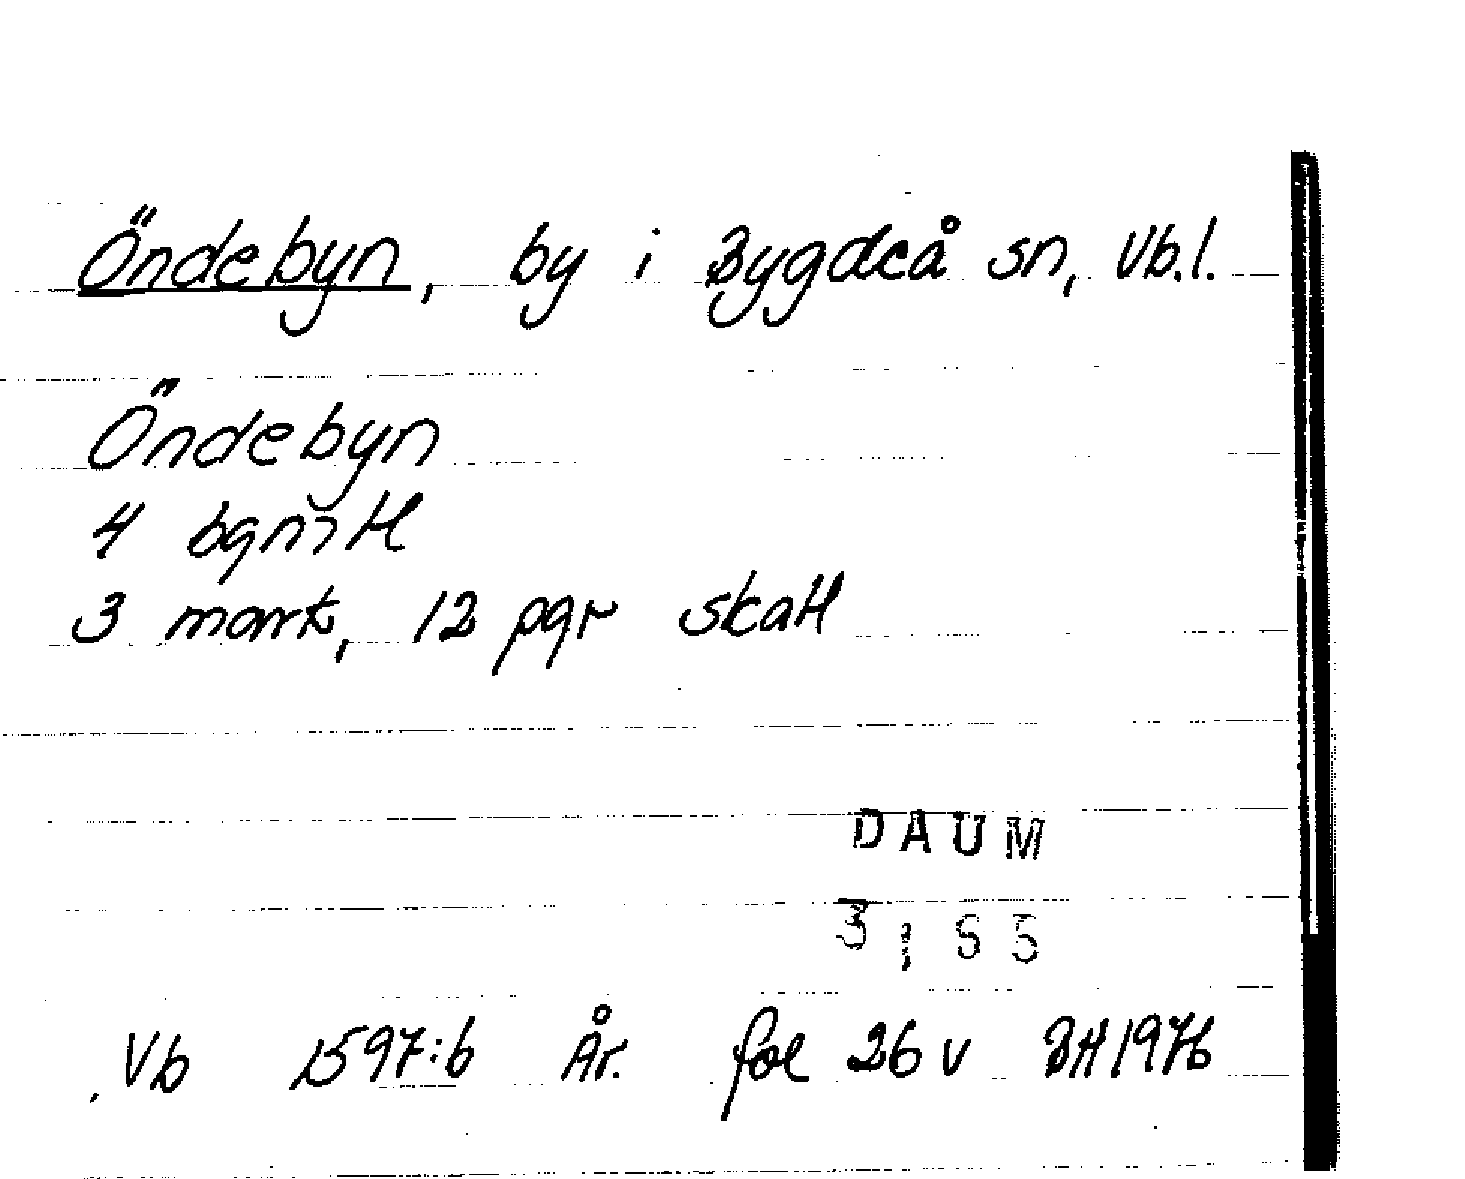 Öndebyn, by i Bygdeå sn, Vb.l.
Öndebyn
4
3 mark, 12 pgr skatt
DAUM
3 ; 55
Vb 1597:b År. fol 26 v BH 1976